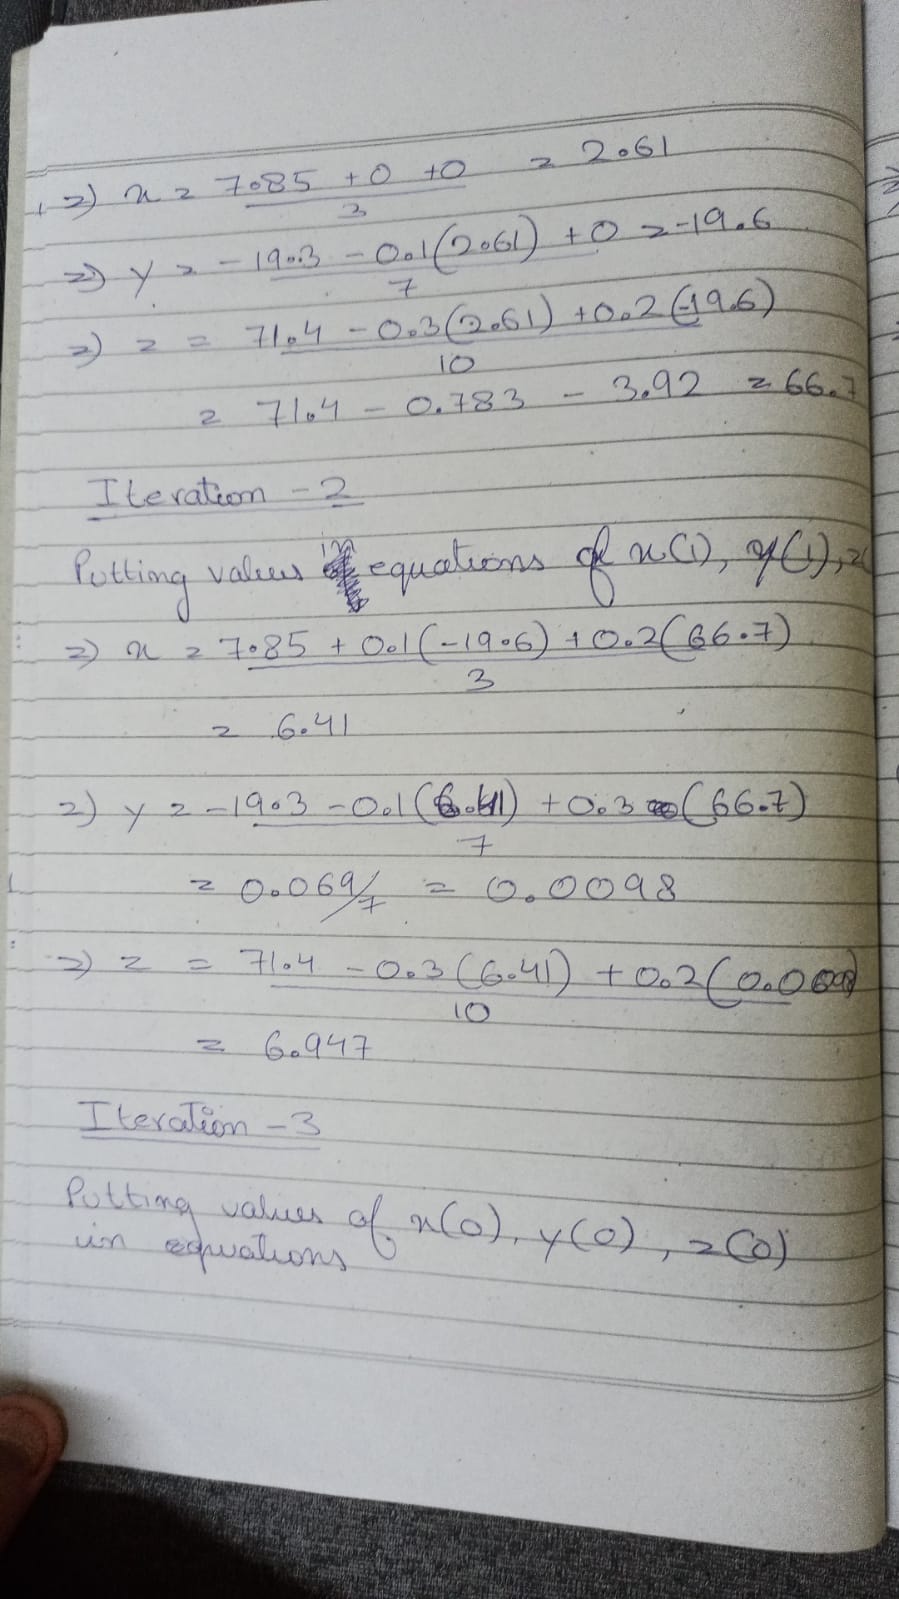 ⇒) x = 7.85 + 0 + 0 = 2.61
3
⇒) y = -19.3 - 0.1(2.61) + 0 = -19.6
7
⇒) z = 71.4 - 0.3(2.61) + 0.2(-19.6)
10
= 71.4 - 0.783 - 3.92 = 66.7
Iteration - 2
Putting values in equations of x(1), y(1), z(
⇒) x = 7.85 + 0.1(-19.6) + 0.2(66.7)
3
= 6.41
⇒) y = -19.3 - 0.1(6.41) + 0.3(66.7)
7
= 0.069/7 = 0.0098
⇒) z = 71.4 - 0.3(6.41) + 0.2(0.0098)
10
= 6.947
Iteration - 3
Putting values of x(0), y(0), z(0)
in equations